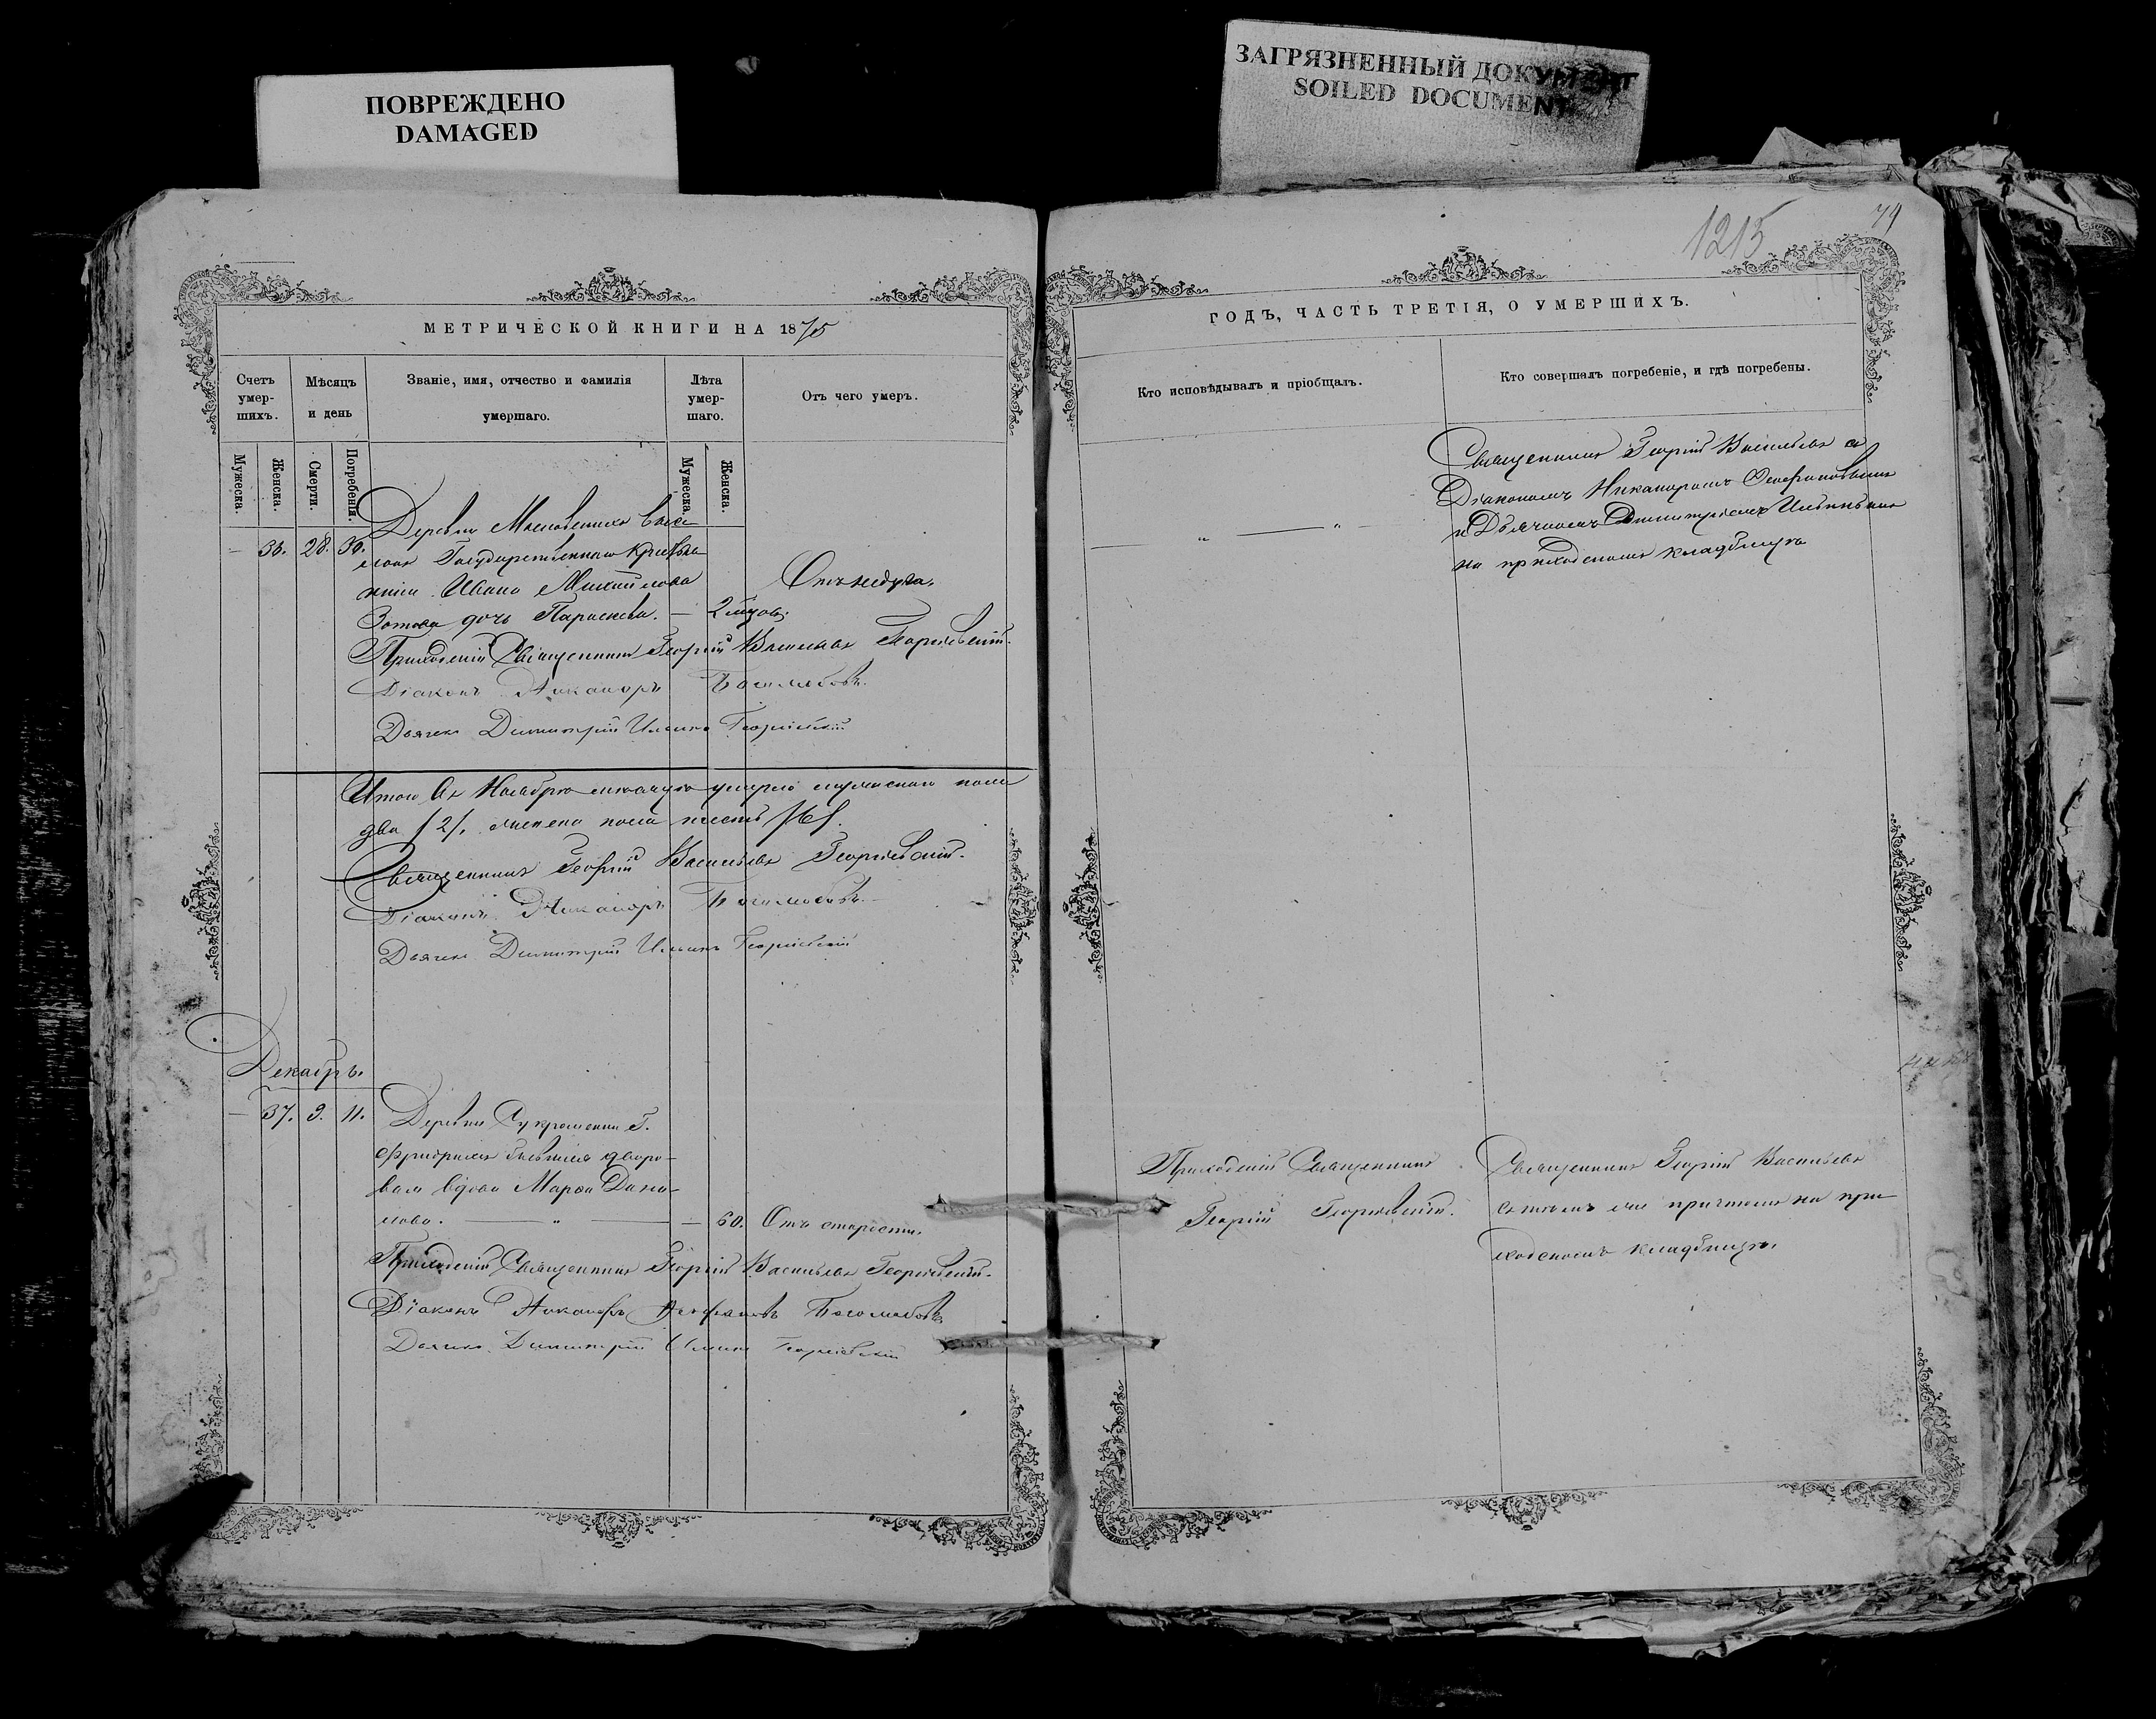 ПОВРЕЖДЕНО
DAMAGED
ЗАГРЯЗНЕННЫЙ ДОКУМЕНТ
SOILED DOCUMENT
1215
МЕТРИЧЕСКОЙ КНИГИ НА 1875
Счетъ умер-шихъ.
Мѣсяцъ и день
Званіе, имя, отчество и фамилія умершаго.
Лѣта умер-шаго.
Отъ чего умеръ.
Мужеска.
Женска.
Смерти.
Погребенія.
Мужеска.
Женска.
Деревни
— 36. 28. 30.
Государственнаго крестья-
нина Ивана Михайлова
Зотова дочь Параскева. —
Отъ недуга.
Приходскій Священникъ Георгій Васильевъ Георгіевскій.
Діаконъ Никаноръ Боголюбовъ.
Дьячекъ Димитрій Ильинъ Георгіевскій
Итого въ Ноябрѣ мѣсяцѣ умерло мужескаго пола
два /2/, женска пола шесть /6/.
Священникъ Георгій Васильевъ Георгіевскій.
Діаконъ Никаноръ Боголюбовъ.
Дьячекъ Димитрій Ильинъ Георгіевскій
Декабрь.
— 37. 9. 11. Деревни
бывшая дворо-
вая вдова Марѳа Дани-
лова. — „ — — 60. Отъ старости.
Приходскій Священникъ Георгій Васильевъ Георгіевскій.
Діаконъ Никаноръ Ѳеофановъ Боголюбовъ
Дьячекъ Димитрій Ильинъ Георгіевскій
79
ГОДЪ, ЧАСТЬ ТРЕТІЯ, О УМЕРШИХЪ.
Кто исповѣдывалъ и пріобщалъ.
Кто совершалъ погребеніе, и гдѣ погребены.
Священникъ Георгій Васильевъ съ
Діакономъ Никаноромъ Ѳеофановымъ
и Дьячкомъ Димитріемъ Ильинымъ
на приходскомъ кладбищѣ
— „ — „ —
Приходскій Священникъ
Георгій Георгіевскій.
Священникъ Георгій Васильевъ
съ тѣмъ же причтомъ на при-
ходскомъ кладбищѣ.